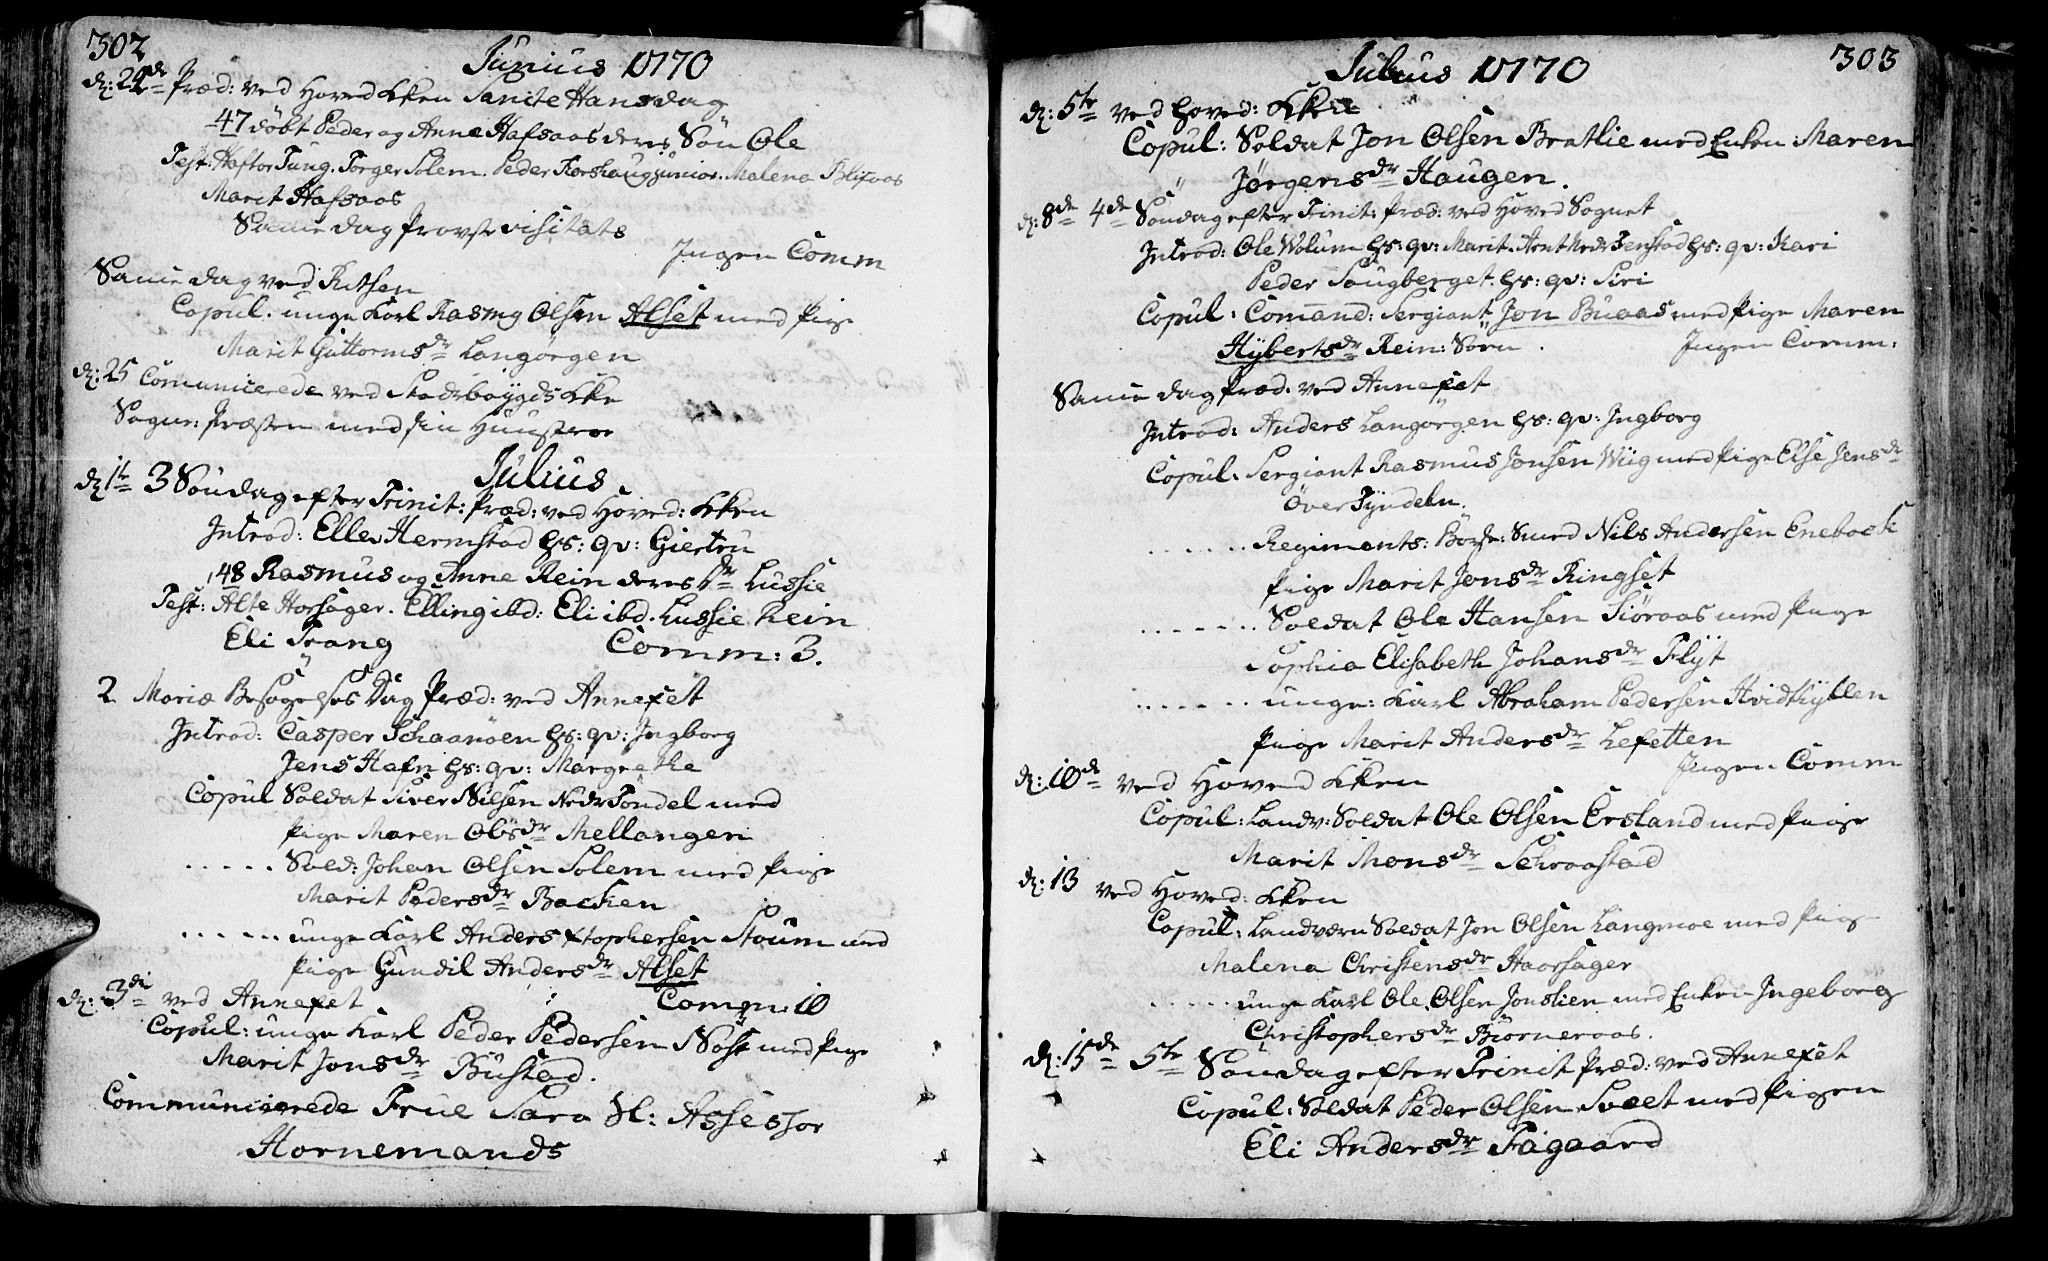 302
Junius 1770
d: 24de Præd: ved Hoved Kken Sancte Hansdag
47 döbt Peder og Anne Hafsaas deres Sön Ole
Test: Haftor Tung. Torger Solem. Peder Forshaug junior. Malena Blixaas
Marit Hafsaas
Samme dag Provste visitats
Ingen Comm
Samme dag ved Ritsen
Copul. unge Karl Rasmg Olsen Alset med Pige
Marit Guttormsdr Langörgen
d: 25 Comunicerede ved Stadsbøygds Kke
Sogne: Præsten med sin Huustroe
Julius
d 1te 3 Söndag efter Trinit: Præd: ved Hoved: Kken
Introd: Ellev Hermstad Hs: qv: Giertru
148 Rasmus og Anne Rein deres Dr Lussie
Test: Alte Horsager. Elling ibd: Eli ibd. Lussie Rein
Eli Trang
Comm: 3.
2 Mariæ Besögelses Dag Præd: ved Annexet
Introd: Casper Schaanöen Hs: qv: Ingborg
Jens Hafn Hs: qv: Margrethe
Copul Soldat Siver Nilsen Nedr Töndel med
Pige Maren Olesdr Mellangen
..... Sold: Johan Olsen Solem med Pige
Marit Pedersdr Backen
...... unge Karl Anders Xtophersen Stoum med
Pige Gundil Andersdr Alset
d: 3di ved Annexet
Comm: 10
Copul: unge Karl Peder Pedersen Nöst med Pige
Marit Jonsdr Bustad.
Communicerede Frue Sara Sl: Assessor
Hornemands
303
Julius 1770
d: 5te ved Hoved: Kken
Copul: Soldat Jon Olsen Bratlie med Enken Maren
Jörgensdr Haugen.
d: 8de 4de Söndag efter Trinit: Præd: ved Hoved Sognet
Introd: Ole Wolum Hs: qv: Marit. Arnt Nedr Fenstad Hs: qv: Kari
Peder Saugberget Hs: qv: Siri
Copul: Comand: Sergiant Jon Buaas med Pige Maren
Hybertsdr Rein: Sörn.
Ingen Comm:
Samme dag Præd: ved Annexet
Introd: Anders Langörgen Hs: qv: Ingborg
Copul: Sergiant Rasmus Jonsen Wiig med Pige Else Jensdr
Över Tyndeln.
....... Regiments: Börse: Smed Nils Andersen Eneboek
Pige Marit Jonsdr Ringset
....... Soldat Ole Hansen Siöraas med Pige
Sophia Elisabeth Johansdr Flyt
....... unge: Karl Abraham Pedersen Hvidthyllen
Pige Marit Andersdr Lefetten
Ingen Comm
d: 10de ved Hoved Kken
Copul: Landv: Soldat Ole Olsen Ersland med Pige
Marit Monsdr Schraastad
d: 13 ved Hoved: Kken
Copul: Landværn Soldat Jon Olsen Langmoe med Pige
Malena Christensdr Haarsager
...... unge Karl Ole Olsen Jonslien med Enken Ingeborg
Christophersdr Biörneraas.
d: 15de 5te Söndag efter Trinit Præd: ved Annexet
Copul: Soldat Peder Olsen Sveet med Pigen
Eli Andersdr Fagaard